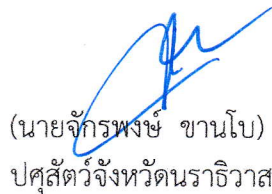 (นายจักรพงษ์ ขานโบ)
ปศุสัตว์จังหวัดนราธิวาส